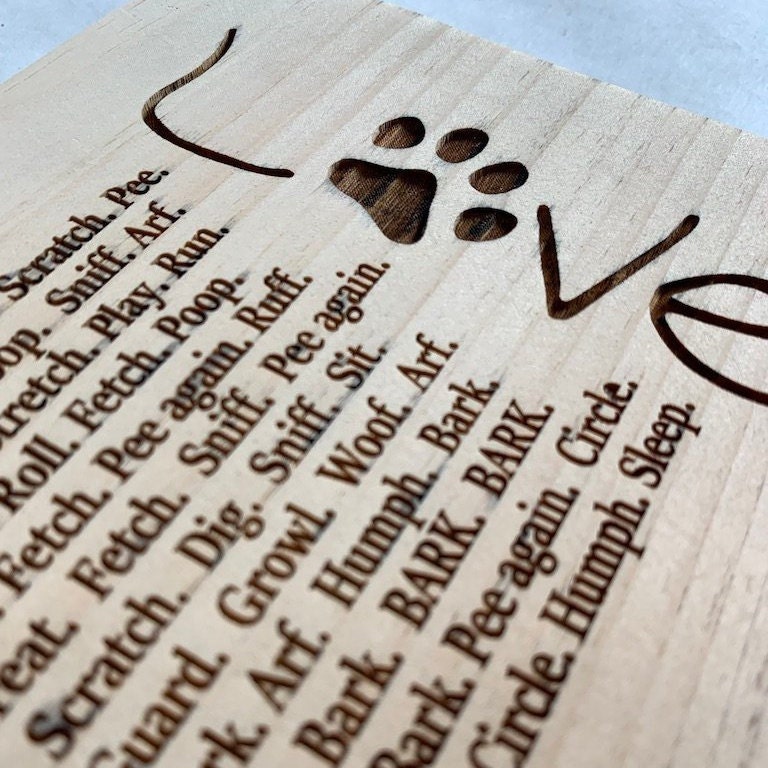 Love
Scratch. Pee.
oop. Sniff. Arf.
Stretch. Play. Run.
Roll. Fetch. Poop.
Fetch. Pee again. Ruff.
reat. Fetch. Sniff. Pee again.
Scratch. Dig. Sniff. Sit.
Guard. Growl. Woof. Arf.
rk. Arf. Humph. Bark.
Bark. BARK. BARK.
Bark. Pee again. Circle.
Circle. Humph. Sleep.